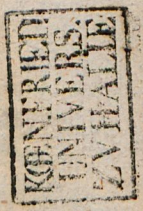 KŒNFRIED
UNIVERS.
ZVHALLE